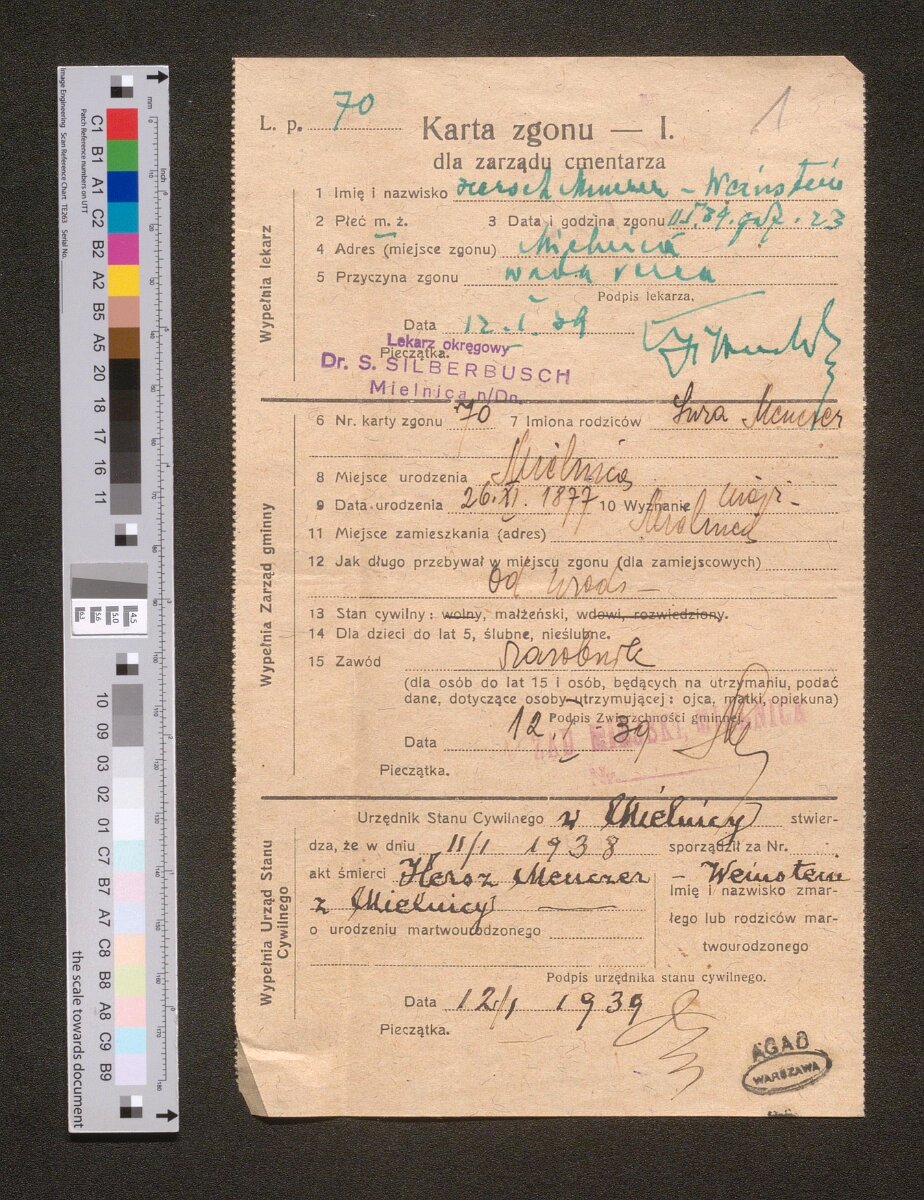 L. p. 70
1
Karta zgonu — I.
dla zarządu cmentarza
Wypełnia lekarz
1 Imię i nazwisko Hersch Menczer - Weinstein
2 Płeć m. ż. 3 Data i godzina zgonu 11.I.39. godz. 23
4 Adres (miejsce zgonu) Mielnica
5 Przyczyna zgonu wada serca
Podpis lekarza.
Data 12.I.39
Pieczątka.
Lekarz okręgowy
Dr. S. SILBERBUSCH
Mielnica n/Dn.
Wypełnia Zarząd gminny
6 Nr. karty zgonu 70 7 Imiona rodziców Sura Menczer
8 Miejsce urodzenia Mielnica
9 Data urodzenia 26.XI.1877 10 Wyznanie mojż-
11 Miejsce zamieszkania (adres) Mielnica
12 Jak długo przebywał w miejscu zgonu (dla zamiejscowych)
Od urodz-
13 Stan cywilny: wolny, małżeński, wdowi, rozwiedziony.
14 Dla dzieci do lat 5, ślubne, nieślubne.
15 Zawód zarobnik
(dla osób do lat 15 i osób, będących na utrzymaniu, podać
dane, dotyczące osoby utrzymującej: ojca, matki, opiekuna)
Podpis Zwierzchności gminnej.
Data 12.I-39
ZARZĄD MIEJSKI, MIELNICA
Nr.
Pieczątka.
Wypełnia Urząd Stanu Cywilnego
Urzędnik Stanu Cywilnego w Mielnicy stwier-
dza, że w dniu 11/I 1938 sporządził za Nr.
akt śmierci Hersz Menczer - Weinstein
z Mielnicy
Imię i nazwisko zmar-
łego lub rodziców mar-
twourodzonego
o urodzeniu martwourodzonego
Podpis urzędnika stanu cywilnego.
Data 12/I 1939
Pieczątka.
AGAD
WARSZAWA
Image Engineering Scan Reference Chart TE263 Serial No.
Patch Reference numbers on UTT
mm
inch
C1 B1 A1 C2 B2 A2 B5 A5 20 18 17 16 11
10 09 03 02 01 C7 B7 A7 C8 B8 A8 C9 B9
the scale towards document